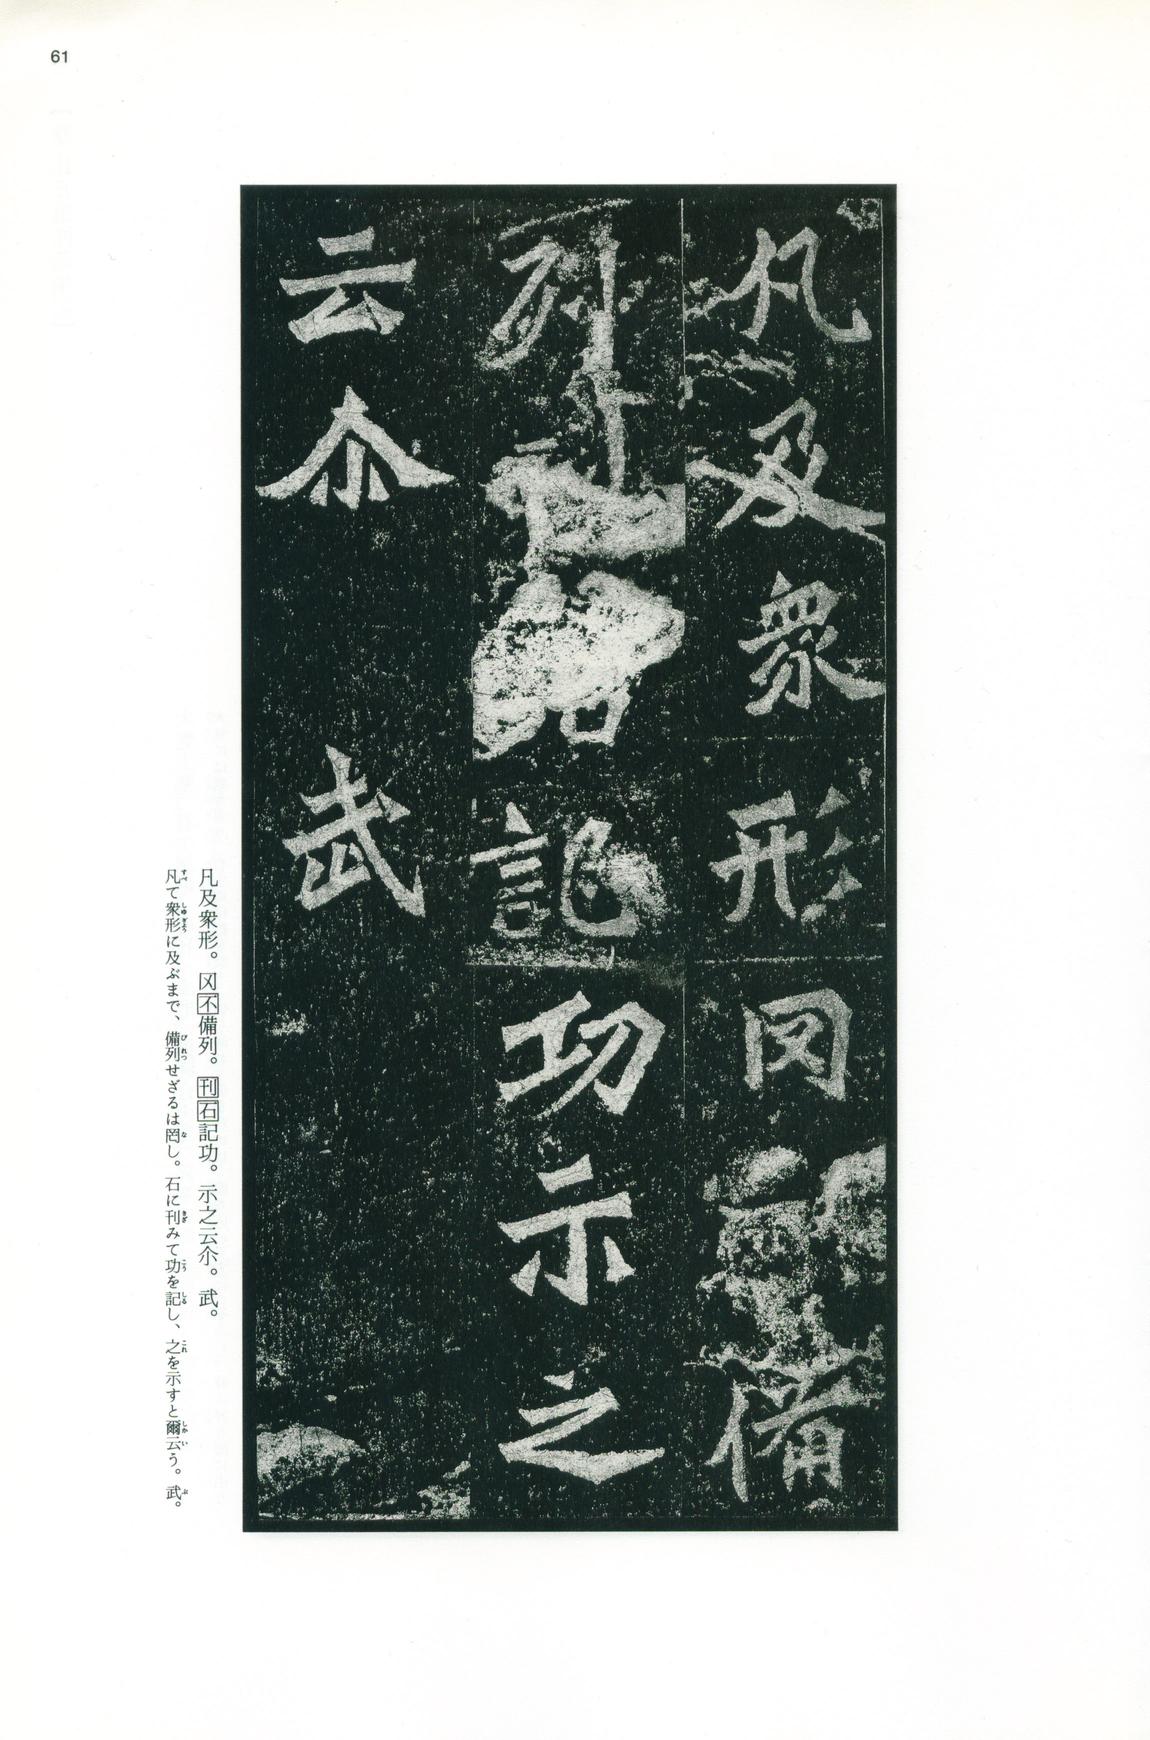 61
凡及衆形冈
備
列
記功示之
云尒 武
凡及衆形。冈不備列。刊石記功。示之云尒。武。
凡て衆形に及ぶまで、備列せざるは罔し。石に刊みて功を記し、之を示すと爾云う。武。